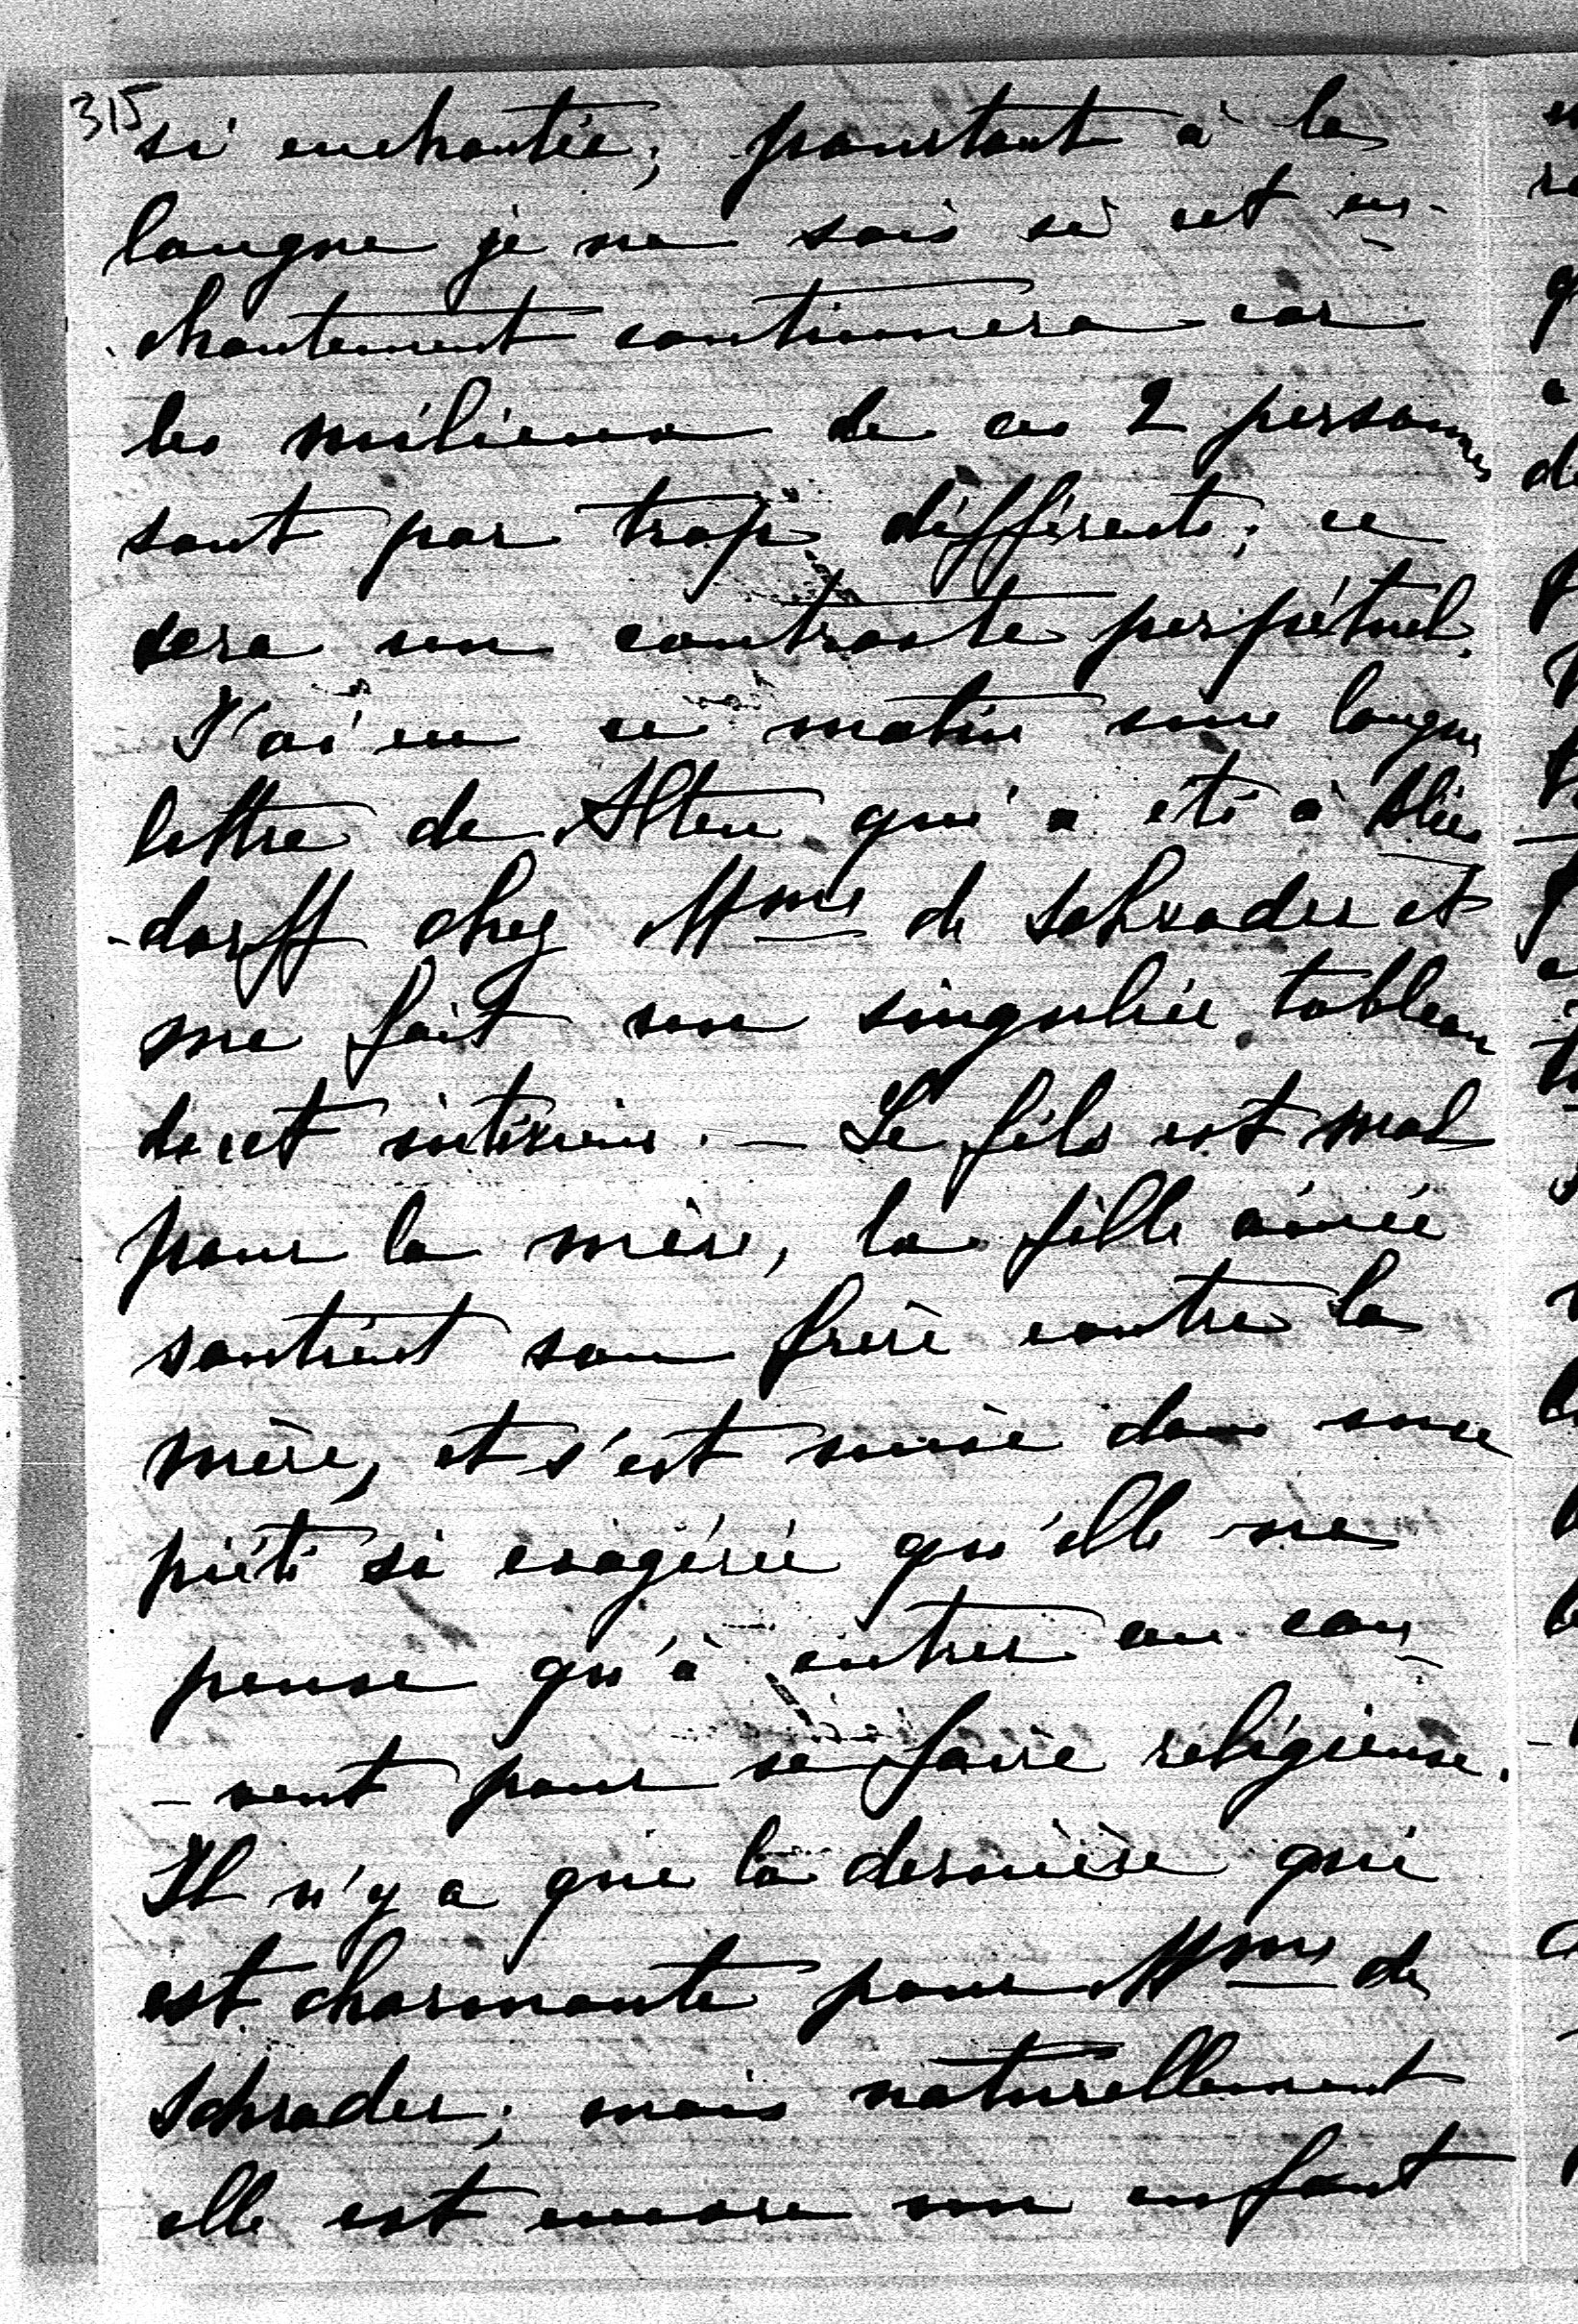 315
si enchantée; pourtant à la
longue je ne sais si cet en-
chantement continuera car
les milieux de ces 2 personnes
sont par trop différents; ce
sera un contraste perpétuel.
J'ai eu ce matin une longue
lettre de Alten qui a été à
-dorff chez Mme de Schrader et
me fait un singulier tableau
de cet intérieur. — Le fils est mal
pour la mère, la fille aînée
soutient son frère contre la
mère, et s'est mise dans une
piété si exagérée qu'elle ne
pense qu'à entrer au cou-
-vent pour se faire religieuse.
Il n'y a que la dernière qui
est charmante pour Mme de
Schrader; mais naturellement
elle est encore un enfant